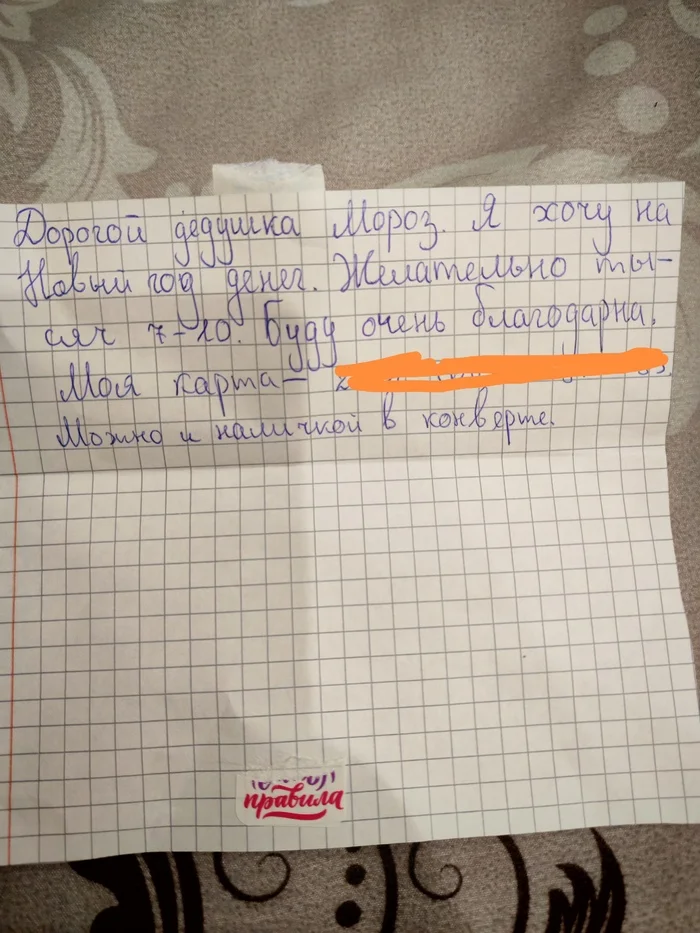 Дорогой дедушка Мороз. Я хочу на
Новый год денег. Желательно ты-
сяч 7-10. Буду очень благодарна.
Моя карта-
Можно и наличкой в конверте.
правила